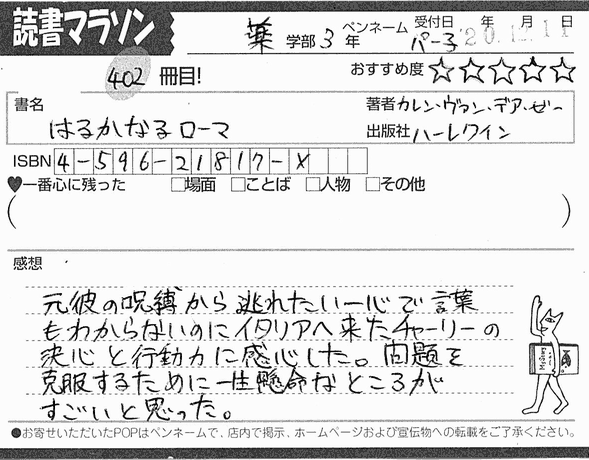 読書マラソン
薬 学部 3 年
ペンネーム パー子
受付日 年 月 日
'20.12.11
402 冊目!
おすすめ度 ☆☆☆☆☆
書名 はるかなるローマ
著者 カレン・ヴァン・デア・ゼー
出版社 ハーレクイン
ISBN 4-596-21817-X
♥一番心に残った □場面 □ことば □人物 □その他
( )
感想
元彼の呪縛から逃れたい一心で言葉
もわからないのにイタリアへ来たチャーリーの
決心と行動力に感心した。問題を
克服するために一生懸命なところが
すごいと思った。
●お寄せいただいたPOPはペンネームで、店内で掲示、ホームページおよび宣伝物への転載をご了承ください。